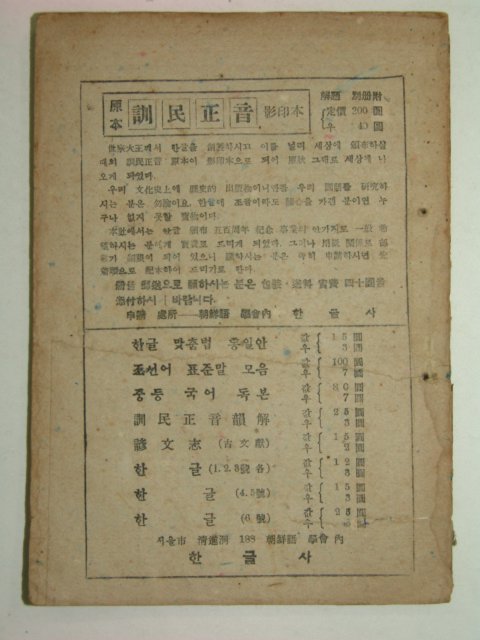 原本 訓民正音 影印本
解題 別册附
定價 200 圓
우 40 圓
世宗大王께서 한글을 創製하시고 이를 널리 세상에 頒布하실
때의 訓民正音 原本이 影印本으로 되어 原狀 그대로 세상에 나
오게 되었다.
우리 文化史上에 歷史的 出版物이니만큼 우리 國語를 研究하
시는 분은 勿論이요, 한글에 조금이라도 關心을 가진 분이면 누
구나 없지 못할 寶物이다.
本社에서는 한글 頒布 五百周年 紀念 事業의 한가지로 一般
하시는 분에게 實費로 드리게 되었다. 그러나 關係로 部
數가 限定이 되어 있으니 願하시는 분은 속히 申請하시면 先
着順으로 配本하여 드리기로 한다.
郵送으로 願하시는 분은 包裝 送料 實費 四十圓을
添付하시기 바랍니다.
申請 處所──朝鮮語 學會內 한글사
한글 맞춤법 통일안 값 15 圓 우 3 圓
조선어 표준말 모음 값 100 圓 우 7 圓
중등 국어 독본 값 30 圓 우 7 圓
訓民正音韻解 값 25 圓 우 3 圓
諺文志 (古文獻) 값 15 圓 우 2 圓
한글 (1.2.3號 各) 값 12 圓 우 3 圓
한글 (4.5號) 값 15 圓 우 3 圓
한글 (6號) 값 圓 우 圓
서울市 清進洞 188 朝鮮語 學會內
한글사